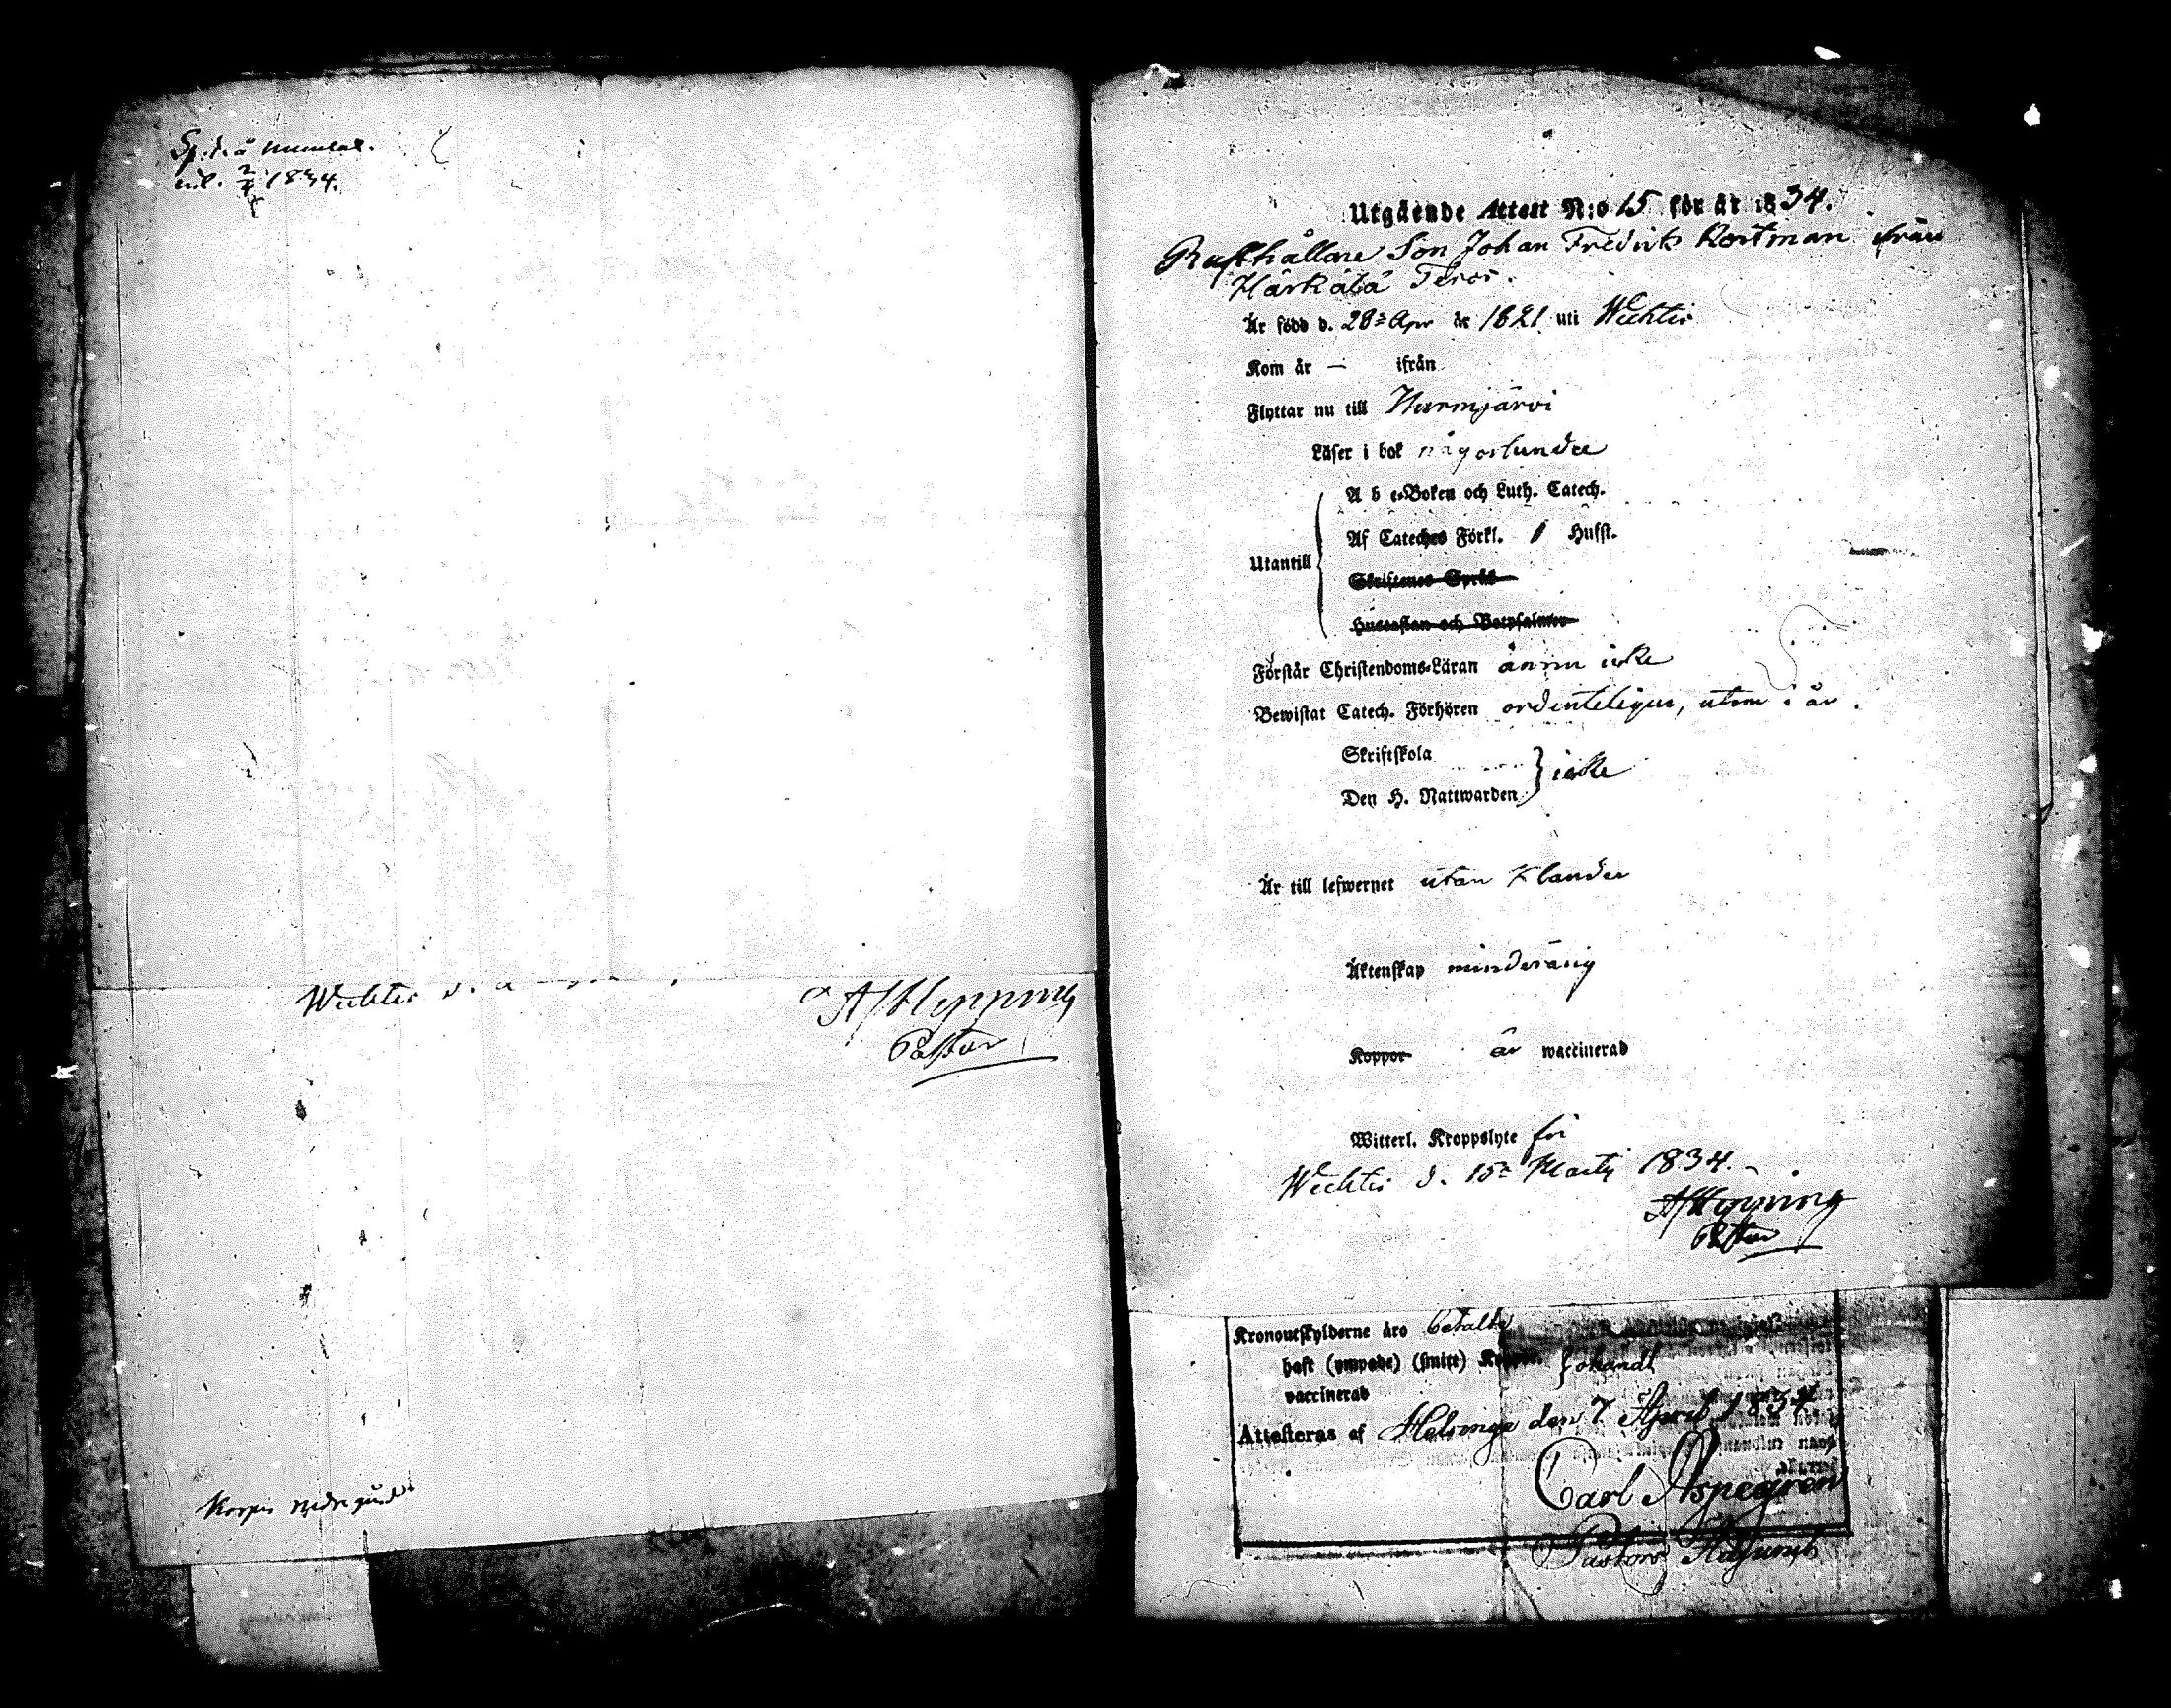 1834.
Wichtis d.
A F Hipping
Pastor
Korpis
Utgående Attest N:o 15 för år 1834.
Rusthållare Son Johan Fredrik Kortman ifrån
Härkälä
Är född d. 28:de Apr år 1821 uti Wichtis
Kom år — ifrån
Flyttar nu till Nurmjärvi
Läser i bok någorlunda
A b c-Boken och Luth. Catech.
Af Catechес Förkl. 1 Hufst.
Utantill
Skriftenes Språk
Hustaflan och Botpsalmer
Förstår Christendoms-Läran ännu icke
Bewistat Catech. Förhören ordenteligen, utom i år.
Skriftskola
icke
Den H. Nattwarden
Är till lefwernet utan klander
Äktenskap minderårig
Koppor är waccinerad
Witterl. Kroppslyte fri
Wichtis d. 15:de Martij 1834.
A F Hipping
Pastor
Kronoutskylderne äro betalte
haft (ympade) (smitt) Koppor.
vaccinerad
Attesteras af Helsinge den 7 April 1834.
Carl Aspegren
Pastors